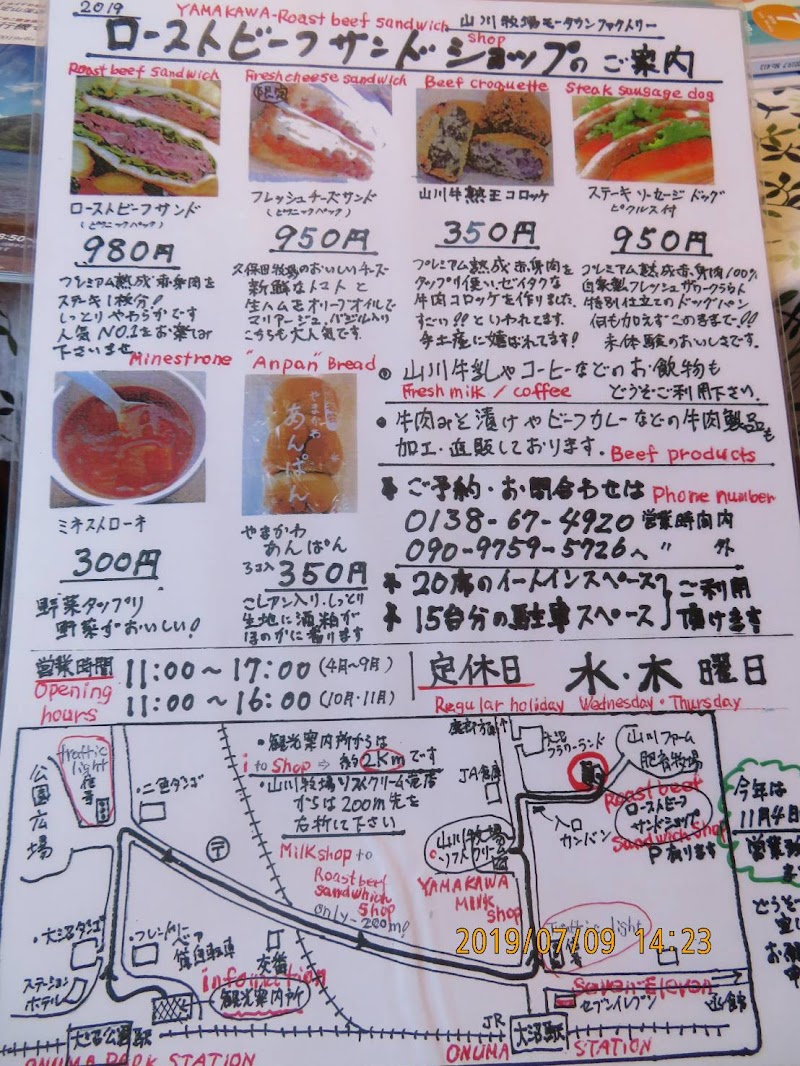 2019
YAMAKAWA-Roast beef sandwich shop
山川牧場モータウンファクトリー
ローストビーフサンドショップのご案内
Roast beef sandwich
ローストビーフサンド
(ピクニックパック)
980円
プレミアム熟成赤身肉を
ステーキ1枚分!
しっとりやわらかです
人気NO.1をお楽しみ
下さいませ
Fresh cheese sandwich
フレッシュチーズサンド
(ピクニックパック)
950円
久保田牧場のおいしいチーズ
新鮮なトマトと
生ハムをオリーブオイルで
マリアージュ、バジル入り
こちらも大人気です.
Beef croquette
山川牛熟王コロッケ
350円
プレミアム熟成赤身肉を
タップリ使い、ゼイタクな
牛肉コロッケを作りました
すごい!!といわれてます.
手土産に嬉ばれてます!
Steak sausage dog
ステーキソーセージドッグ
ピクルス付
950円
プレミアム熟成赤身肉100%
自家製フレッシュザワークラウト
特別仕立てのドッグパン
何も加えずこのままで!!
未体験のおいしさです.
Minestrone
ミネストローネ
300円
野菜タップリ
野菜がおいしい!
"Anpan" Bread
やまかわ
あんぱん
やまかわ
あんぱん
3コ入 350円
こしアン入り・しっとり
生地に酒粕が
ほのかに香ります
山川牛乳やコーヒーなどのお飲物も
Fresh milk / coffee どうそご利用下さい.
• 牛肉みそ漬けやビーフカレーなどの牛肉製品も
加工・直販しております. Beef products
ご予約・お問合わせは Phone number
0138-67-4920 営業時間内
090-9759-5726へ 〃 外
20席のイートインスペース
15台分の駐車スペース
ご利用
頂けます
営業時間
Opening
hours
11:00〜17:00 (4月〜9月)
11:00〜16:00 (10月・11月)
定休日 水・木曜日
Regular holiday Wednesday・Thursday
公園広場
traffic
light
信号
・二色ダンゴ
・観光案内所からは
i to shop ⇒ 約2Kmです
・山川牧場ソフトクリーム売店
からは200m先を
右折して下さい
Milk shop to
Roast beef
sandwich
shop
only-200m!
〒
鹿部方面
大沼
フラワーランド
JA倉庫
山川ファーム
肥育牧場
山川牧場
ソフトクリーム
YAMAKAWA
MILK
shop
入口
カンバン
Roast beef
ローストビーフ
サンドショップ
Sandwich shop
Pあります
今年は
11月4日
営業
Traffic light
・大沼ダンゴ
・フレンドリーベア
貸自転車
交番
ステーション
ホテル
information
観光案内所
Seven Eleven
セブンイレブン
函館
大沼公園駅
ONUMA PARK STATION
JR
大沼駅
ONUMA STATION
2019/07/09 14:23